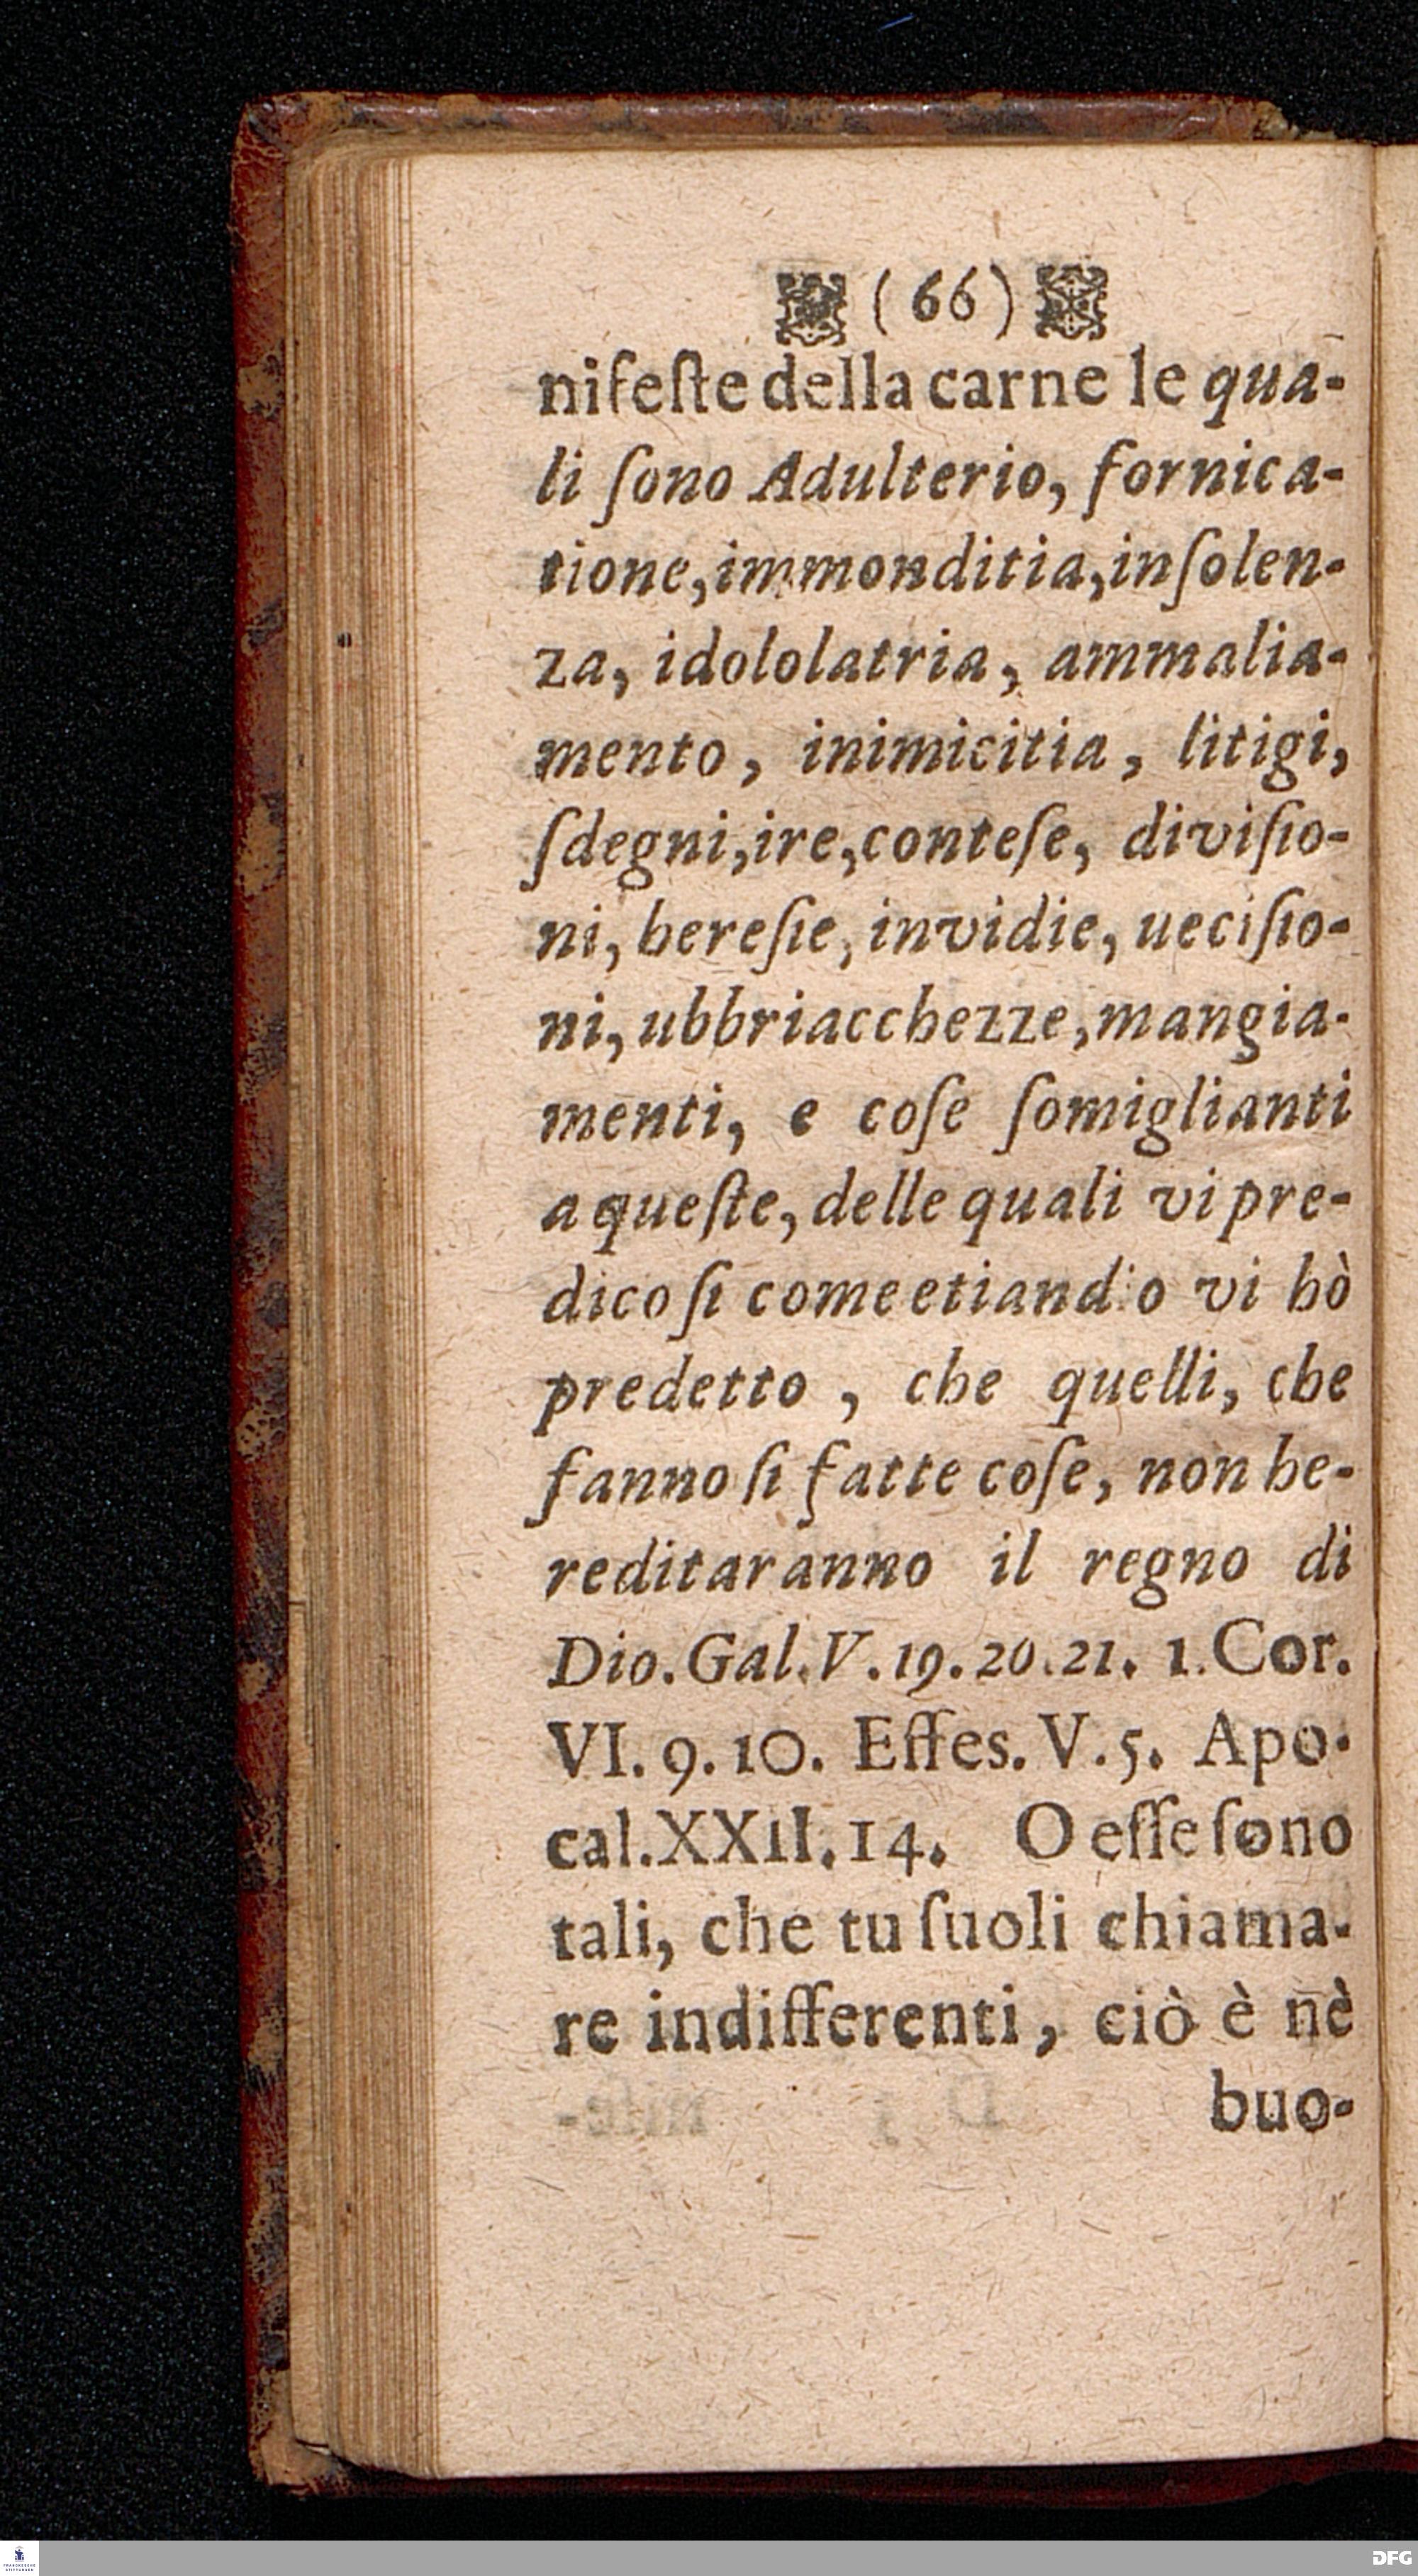 (66)
nifeſte della carne le qua-
li ſono Adulterio, fornica-
tione, immonditia, inſolen-
za, idololatria, ammalia-
mento, inimicitia, litigi,
ſdegni, ire, conteſe, diviſio-
ni, hereſie, invidie, ueciſio-
ni, ubbriacchezze, mangia-
menti, e coſe ſomiglianti
a queſte, delle quali vi pre-
dico ſi come etiandio vi hò
predetto, che quelli, che
fanno ſi fatte coſe, non he-
reditaranno il regno di
Dio. Gal. V. 19. 20. 21. 1. Cor.
VI. 9. 10. Effes. V. 5. Apo-
cal. XXII. 14. O eſſe ſono
tali, che tu ſuoli chiama-
re indifferenti, ciò è nè
buo-
FRANCKESCHE
STIFTUNGEN
DFG